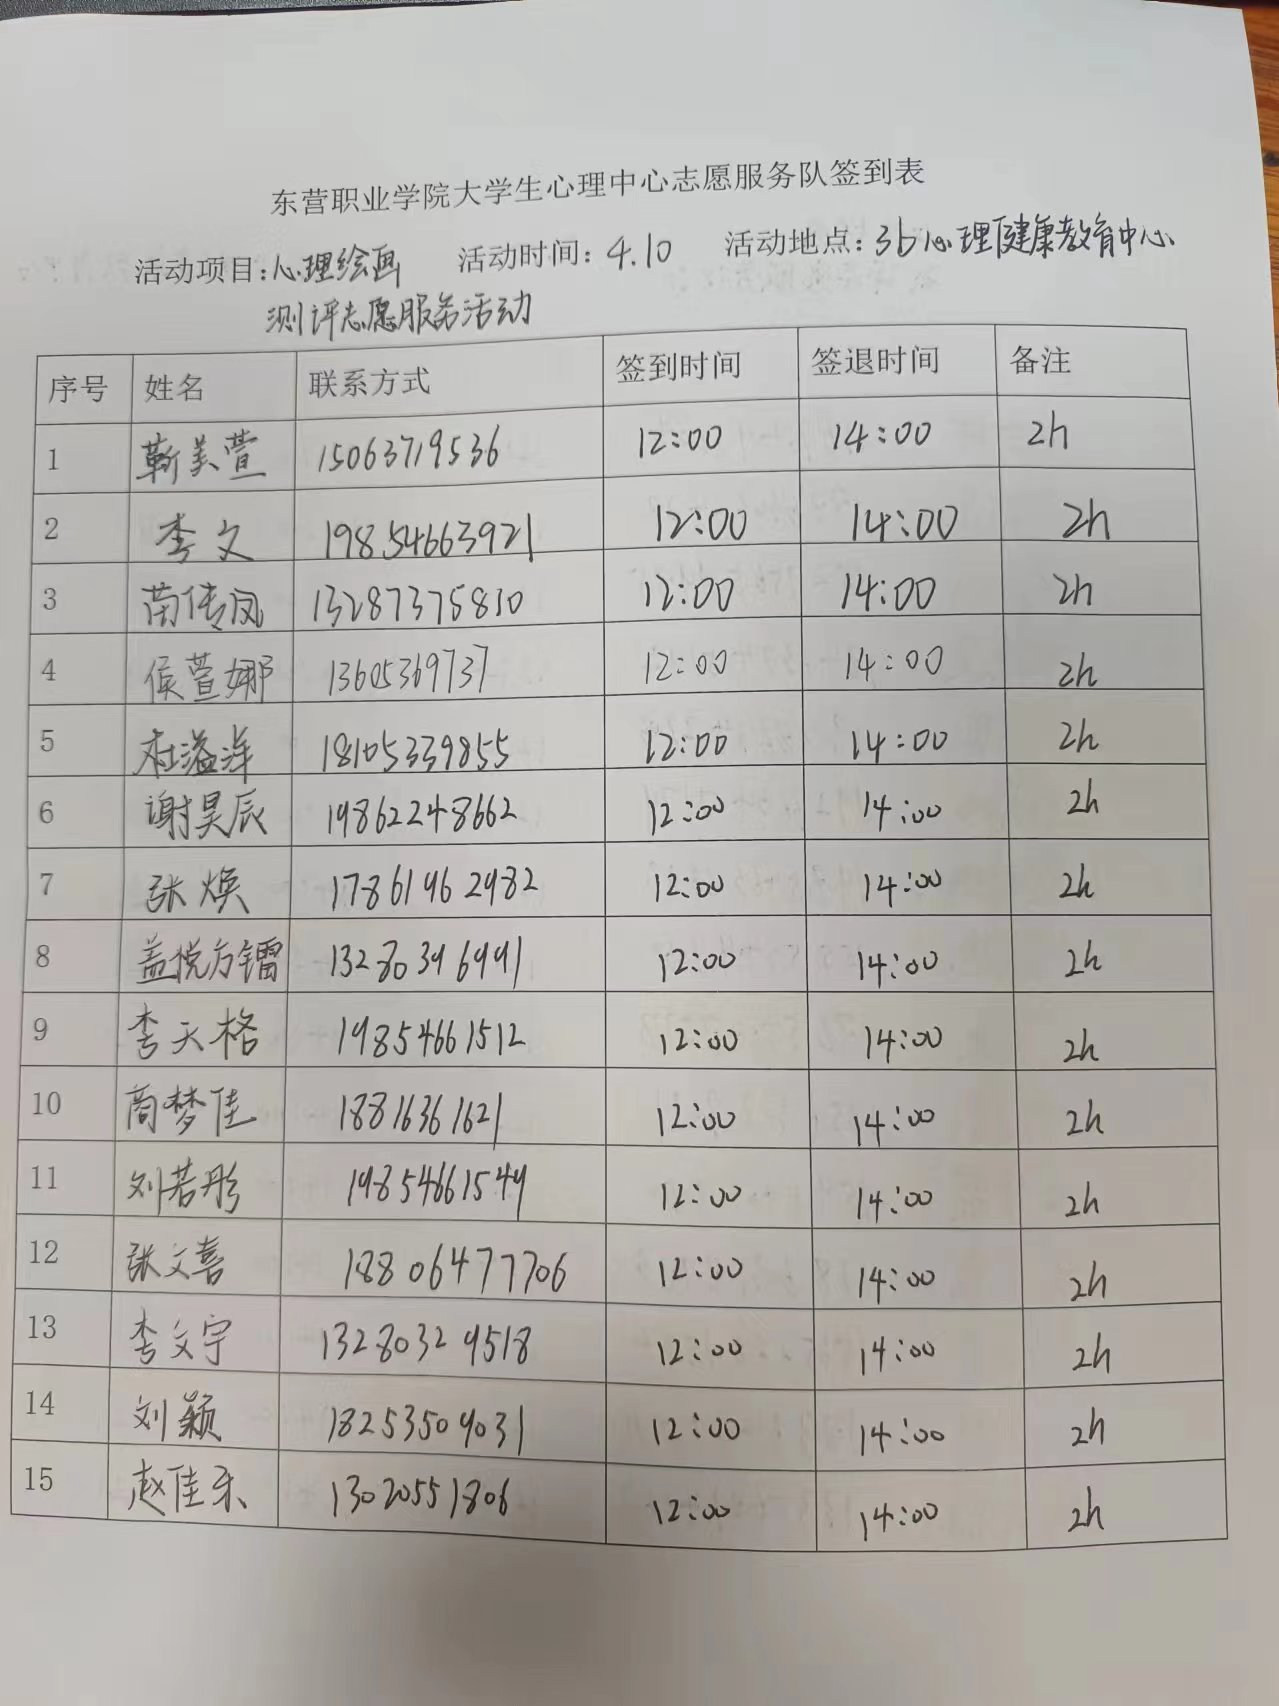 东营职业学院大学生心理中心志愿服务队签到表
活动项目:心理绘画 活动时间:4.10 活动地点:3b心理健康教育中心
测评志愿服务活动
序号 姓名 联系方式 签到时间 签退时间 备注
1 靳美萱 15063719536 12:00 14:00 2h
2 李文 19854663921 12:00 14:00 2h
3 苗传凤 13287375810 12:00 14:00 2h
4 侯萱娜 13605369737 12:00 14:00 2h
5 杜溢洋 18105339855 12:00 14:00 2h
6 谢昊辰 19862248662 12:00 14:00 2h
7 张焕 17861962982 12:00 14:00 2h
8 盖悦方镭 13280396991 12:00 14:00 2h
9 李天格 19854661512 12:00 14:00 2h
10 商梦佳 18816361621 12:00 14:00 2h
11 刘若彤 19854661549 12:00 14:00 2h
12 张文喜 18806477706 12:00 14:00 2h
13 李文宇 13280329518 12:00 14:00 2h
14 刘颖 18253509031 12:00 14:00 2h
15 赵佳禾 13020551806 12:00 14:00 2h